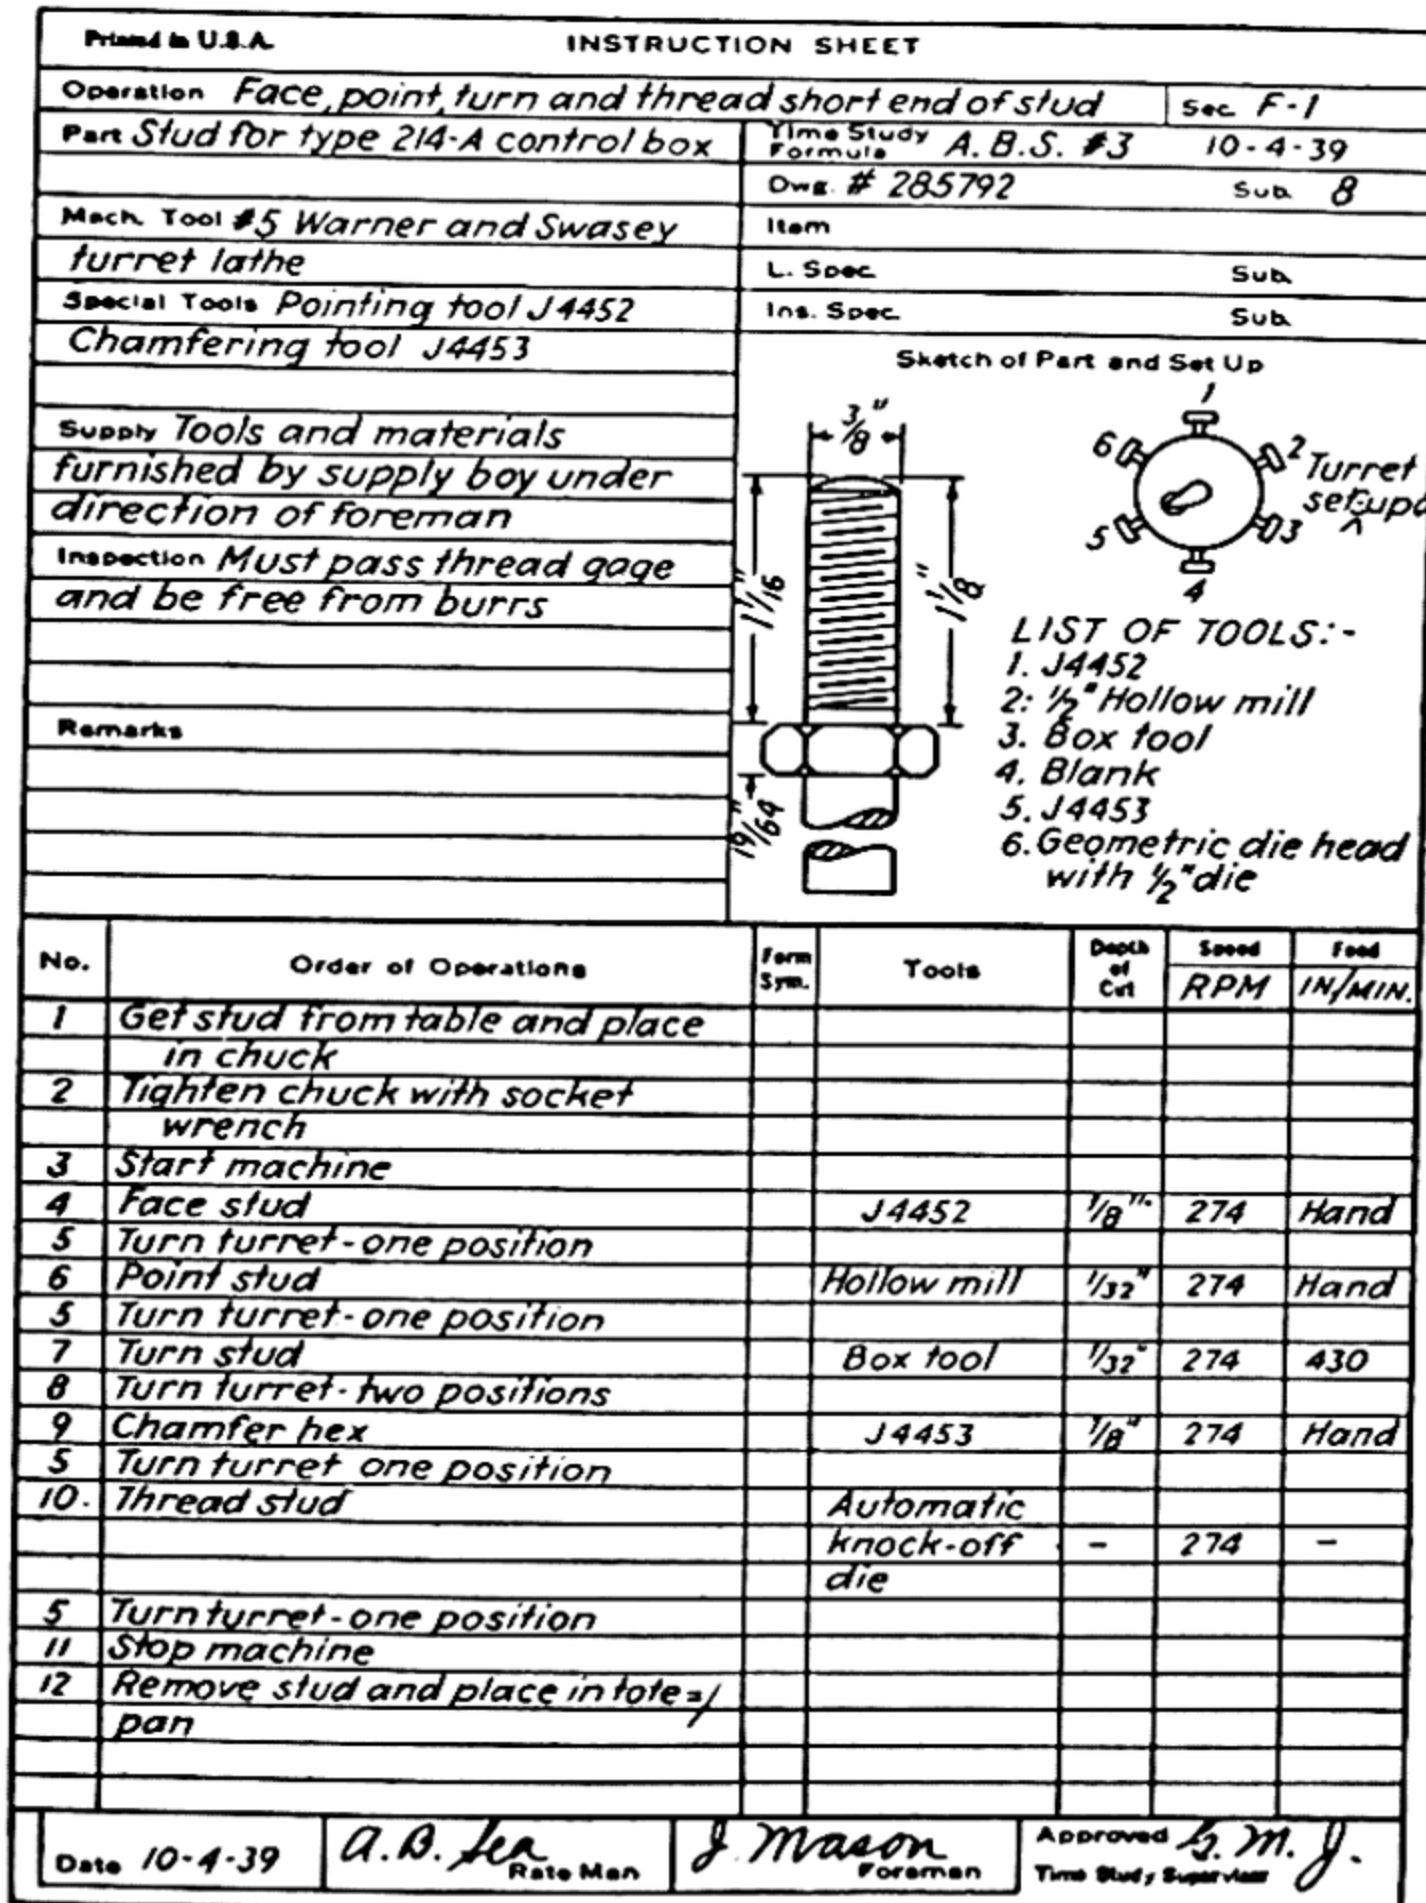 Printed in U.S.A.
INSTRUCTION SHEET
Operation Face, point, turn and thread short end of stud
Sec. F-1
Part Stud for type 214-A control box
Time Study Formula A.B.S. #3 10-4-39
Dwg. # 285792 Sub. 8
Mach. Tool #5 Warner and Swasey
turret lathe
Item
L. Spec. Sub.
Special Tools Pointing tool J4452
Chamfering tool J4453
Ins. Spec. Sub.
Supply Tools and materials
furnished by supply boy under
direction of foreman
Inspection Must pass thread gage
and be free from burrs
Remarks
Sketch of Part and Set Up
3/8"
1 1/16"
1 1/8"
19/64"
1
2
3
4
5
6
Turret
LIST OF TOOLS:-
1. J4452
2: 1/2" Hollow mill
3. Box tool
4. Blank
5. J4453
6. Geometric die head
with 1/2" die
No. Order of Operations Form Sym. Tools Depth of Cut Speed RPM Feed IN/MIN.
1 Get stud from table and place
in chuck
2 Tighten chuck with socket
wrench
3 Start machine
4 Face stud J4452 1/8" 274 Hand
5 Turn turret-one position
6 Point stud Hollow mill 1/32" 274 Hand
5 Turn turret-one position
7 Turn stud Box tool 1/32" 274 430
8 Turn turret-two positions
9 Chamfer hex J4453 1/8" 274 Hand
5 Turn turret one position
10. Thread stud Automatic
knock-off - 274 -
die
5 Turn turret-one position
11 Stop machine
12 Remove stud and place in tote=/
pan
Date 10-4-39
A.B. Rate Man
J. Mason Foreman
Approved M. J.
Time Study Supervisor